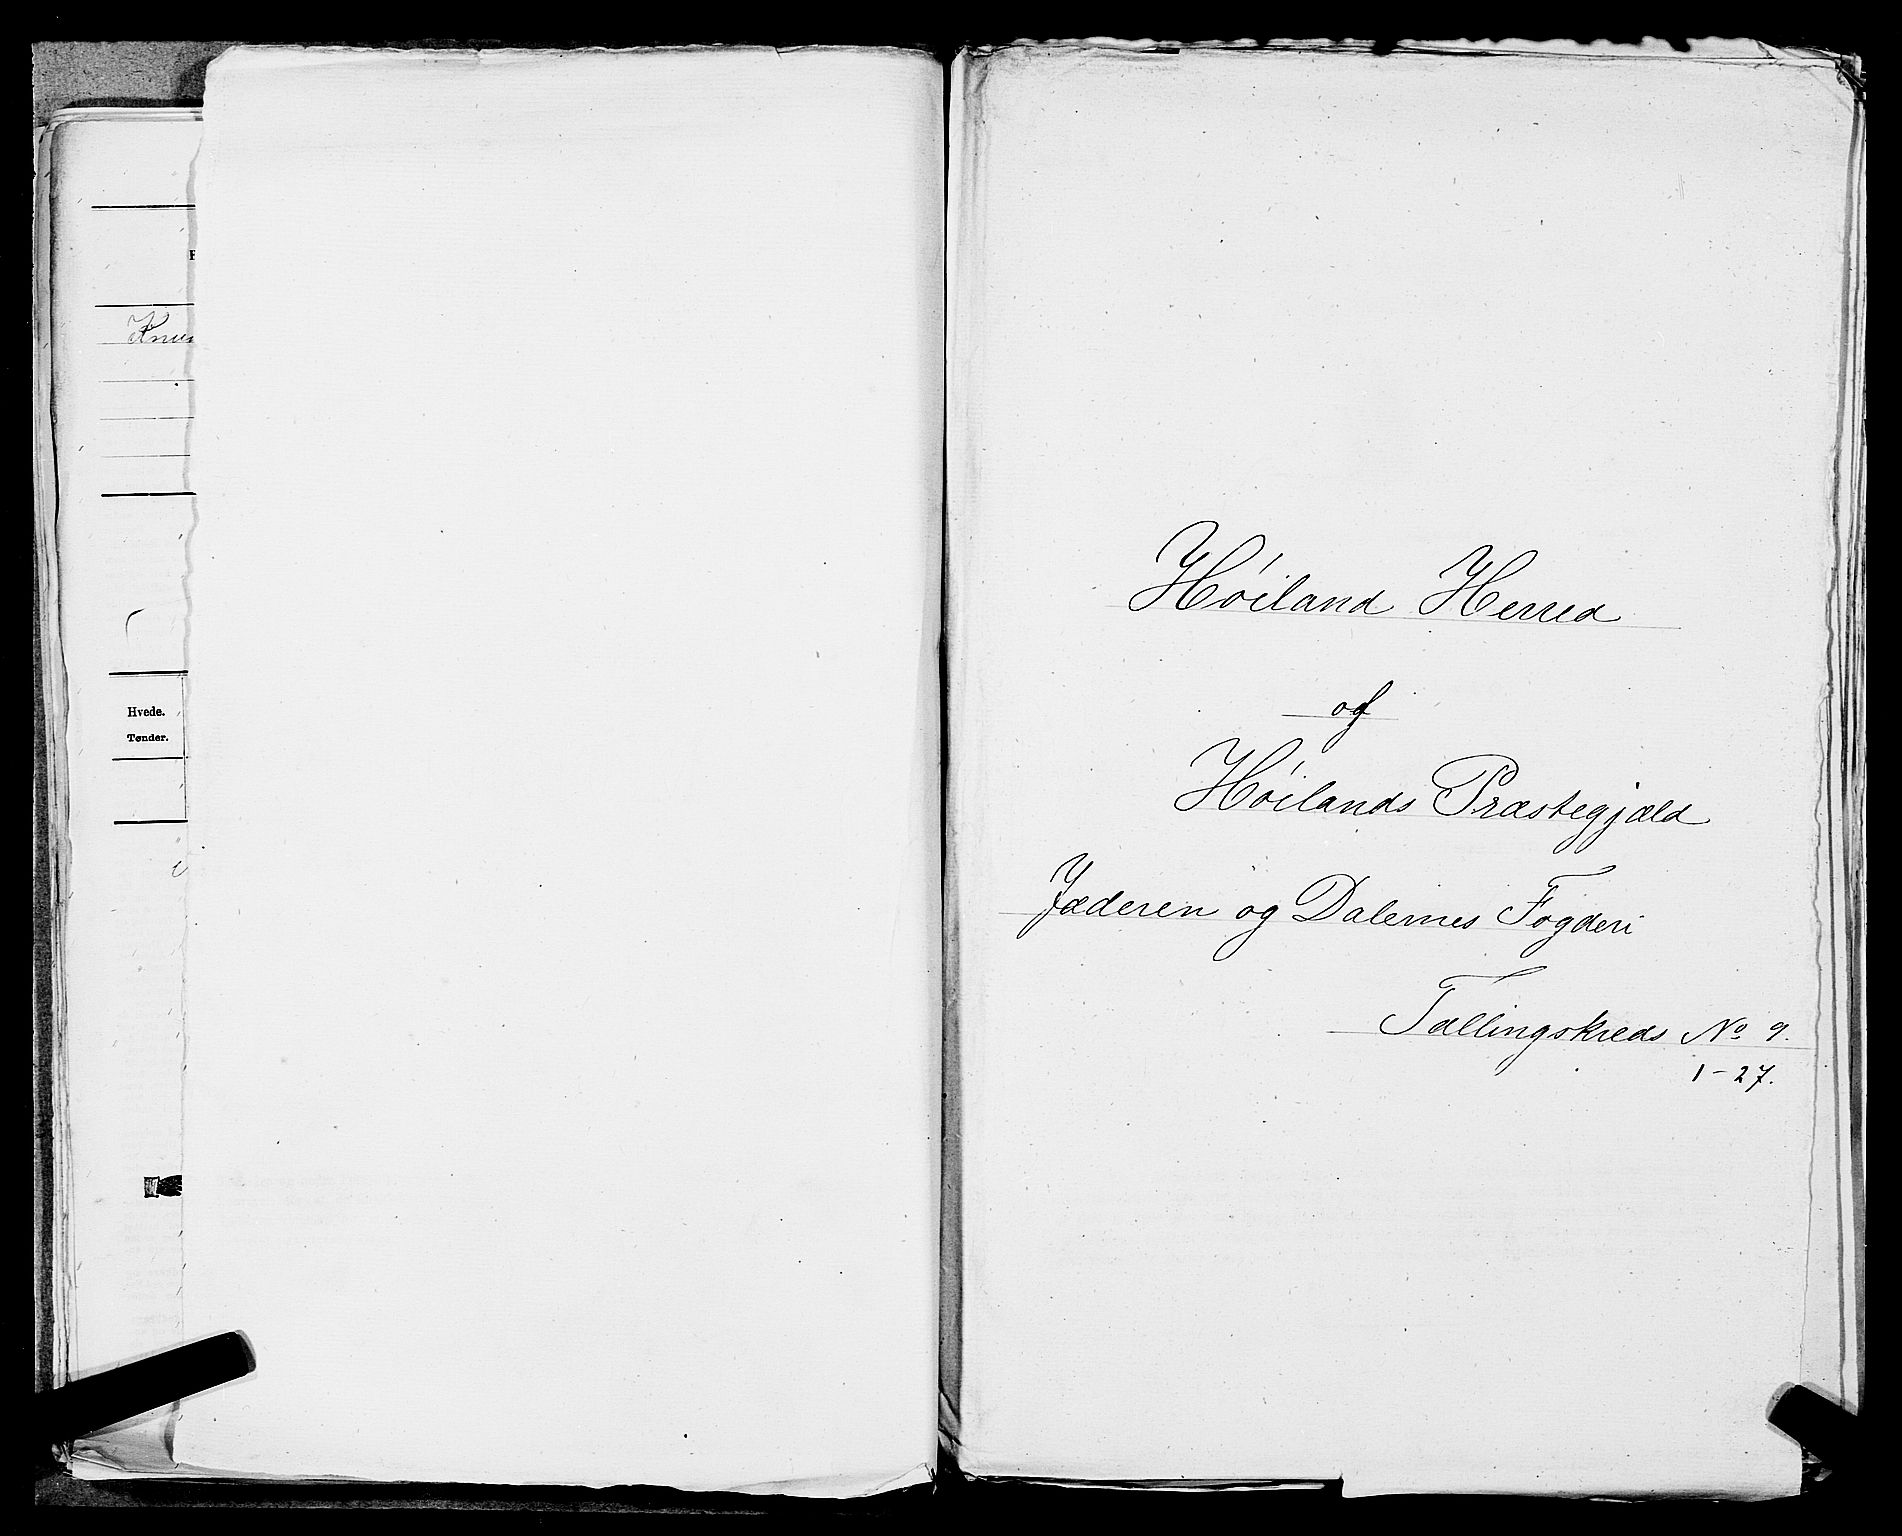 Knu
Hvede.
Tønder.
Høiland Herred
og
Høilands Præstegjæld
Jæderen og Dalernes Fogderi
Tællingskreds No 9.
1-27.